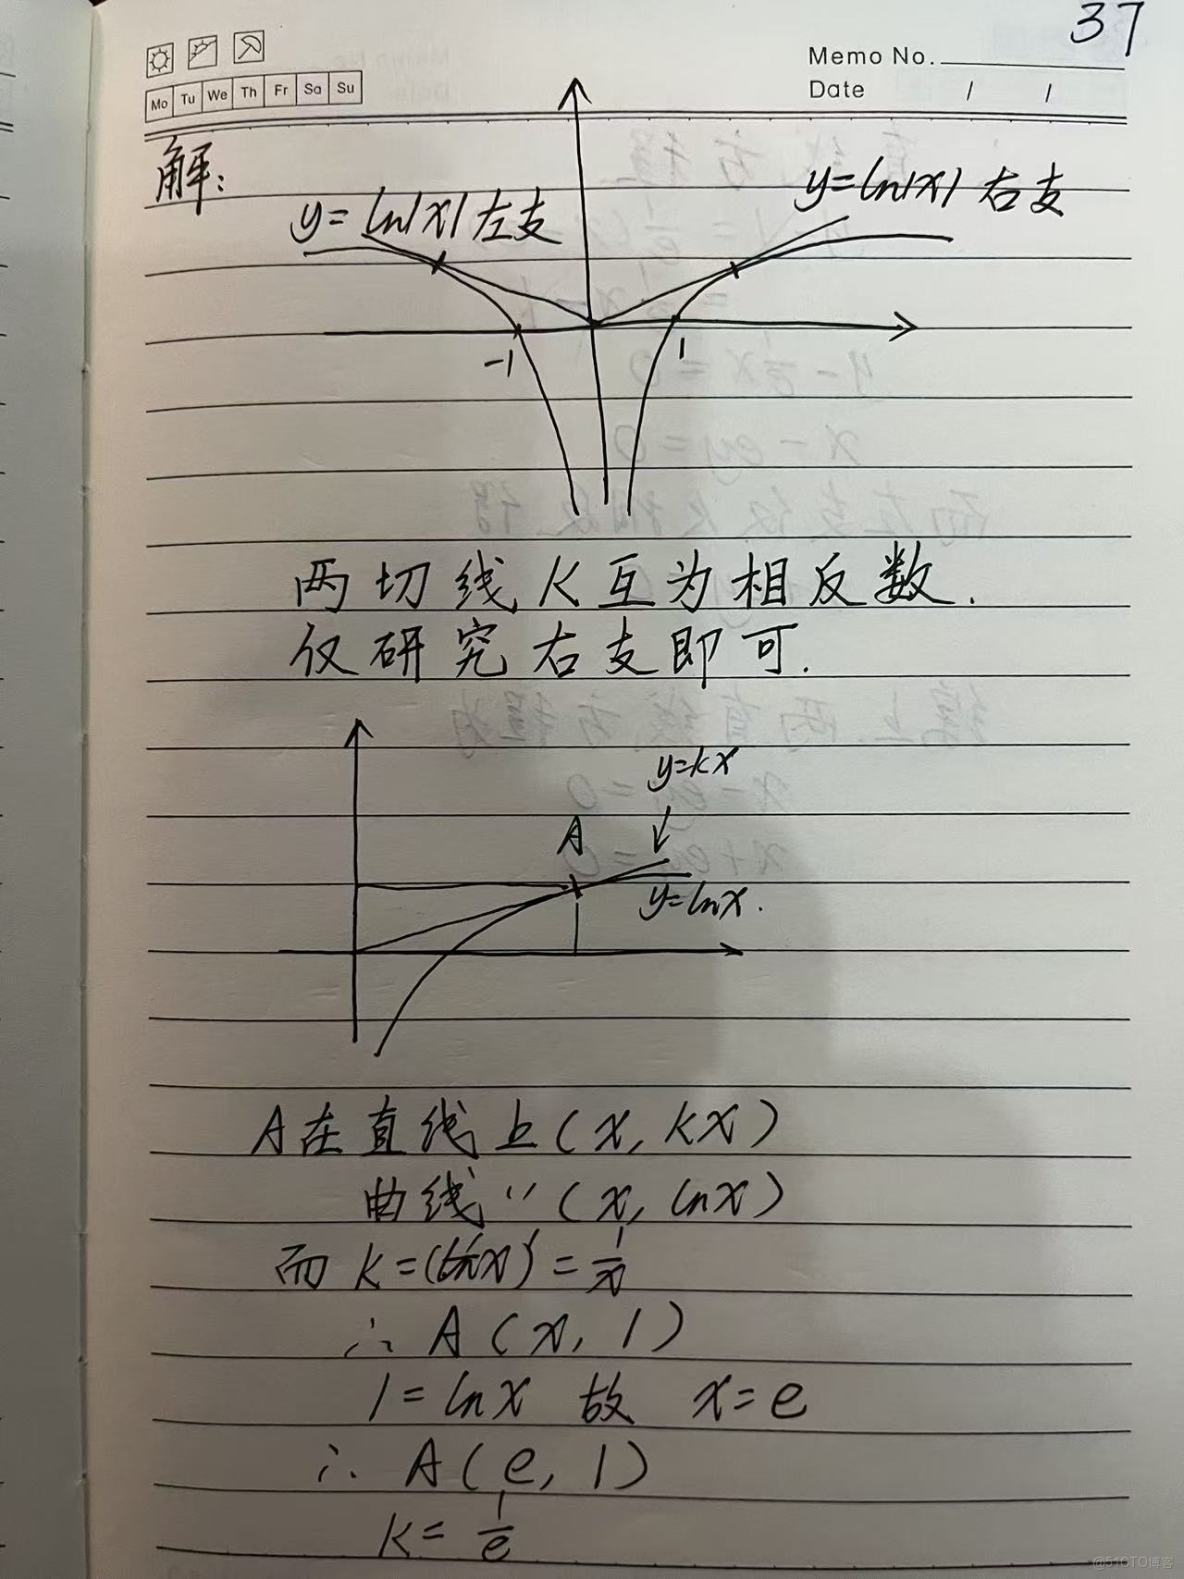 37
Memo No.
Mo Tu We Th Fr Sa Su
Date / /
解:
y=ln|x| 左支
y=ln|x| 右支
-1
1
两切线K互为相反数.
仅研究右支即可.
y=kx
A
y=lnx.
A在直线上(x, kx)
曲线〃(x, lnx)
而 k=(lnx)'=1/x
∴ A(x, 1)
1=lnx 故 x=e
∴ A(e, 1)
k=1/e
@51CTO博客